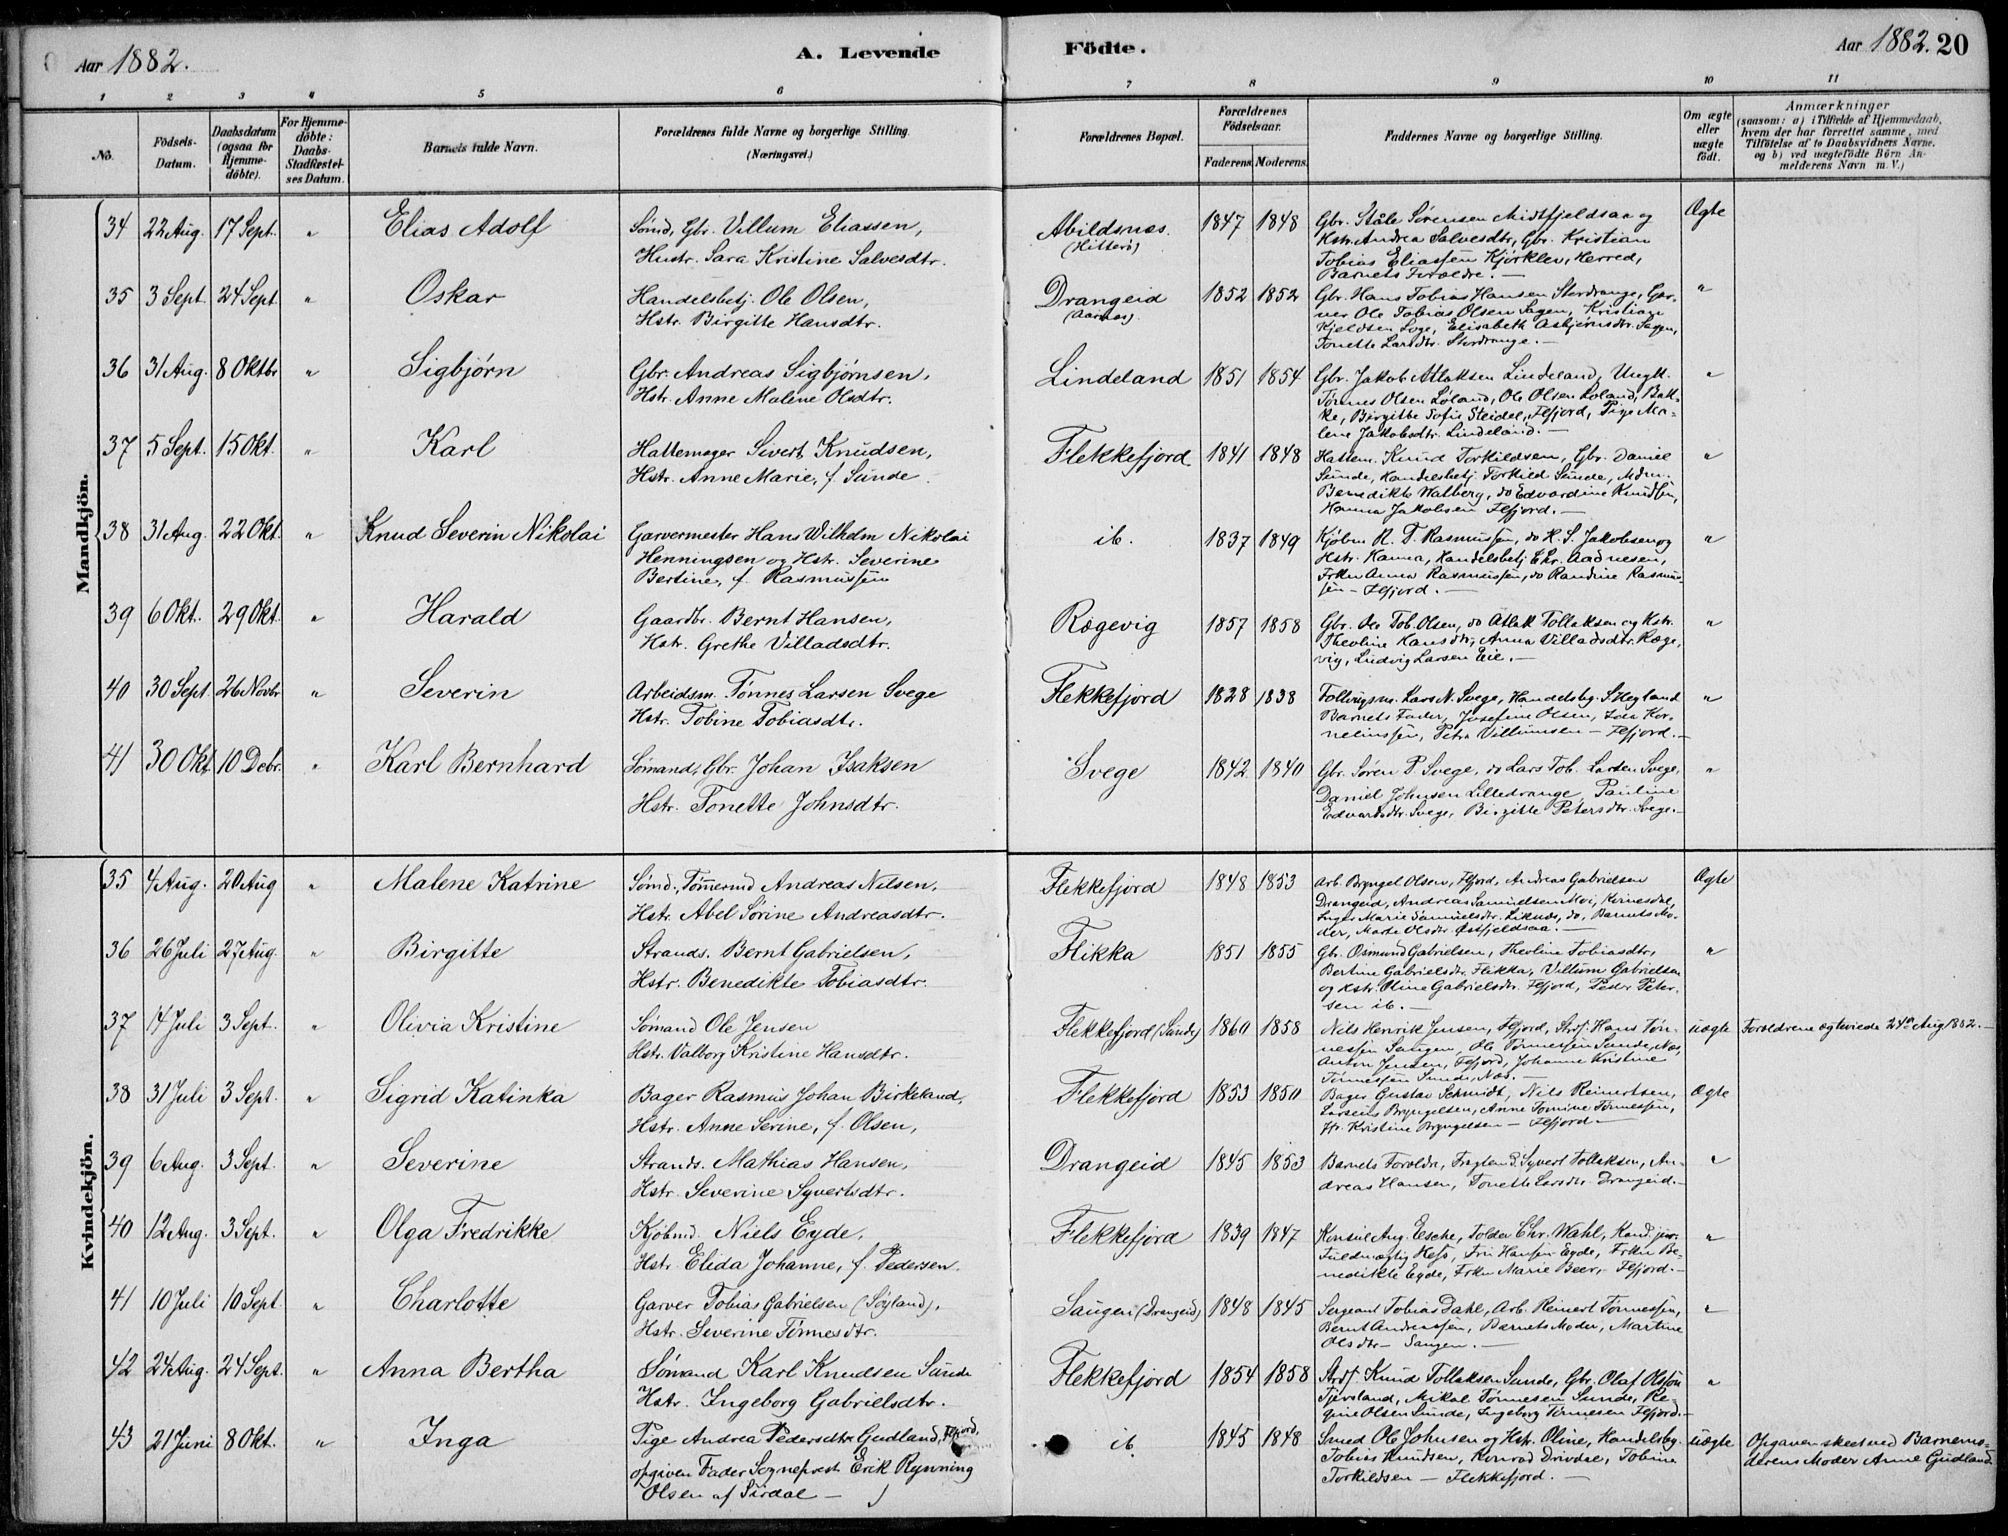 Aar 1882.
A. Levende
Födte.
Aar 1882. 20
1 2 3 4 5 6 7 8 9 10 11
No.
Födsels-
Datum.
Daabsdatum
(ogsaa for
Hjemme-
döbte).
For Hjemme-
döbte:
Daabs-
Stadfæstel-
ses Datum.
Barnets fulde Navn.
Forældrenes fulde Navne og borgerlige Stilling.
(Næringsvei.)
Forældrenes Bopæl.
Forældrenes
Födselsaar.
Faderens. Moderens.
Faddernes Navne og borgerlige Stilling.
Om ægte
eller
uægte
födt.
Anmærkninger
(saasom: a) i Tilfælde af Hjemmedaab,
hvem der har forrettet samme, med
Tilföielse af to Daabsvidners Navne,
og b) ved uægtefödte Börn An-
melderens Navn m.V.)
Mandkjön.
34 22 Aug. 17 Sept. " Elias Adolf Sømd, Gbr. Villum Eliassen, Abildsnæs. 1847 1848 Gbr. Ståle Sørensen Midtfjeldsaa og Ægte
Hustr. Sara Kristine Salvesdtr. (Hitterø) Hstr. Andrea Salvesdtr, Gbr. Kristian
Tobias Eliassen Kjørklev, Herred,
Barnets Forældre. —
35 3 Sept. 24 Sept " Oskar Handelsbetj. Ole Olsen, Drangeid 1852 1852 Gbr. Hans Tobias Hansen Stordrange, Gar- "
Hstr. Birgitte Hansdtr. ver Ole Tobias Olsen Sagen, Kristian
Kjeldsen Loge, Elisabeth Asbjørnsdtr. Saggen,
Tonette Larsdtr. Stordrange. —
36 31 Aug. 8 Oktbr " Sigbjørn Gbr. Andreas Sigbjørnsen, Lindeland 1851 1854 Gbr. Jakob Atlaksen Lindeland, Ungk. "
Hstr. Anne Malene Olsdtr. Tønnes Olsen Løland, Ole Olsen Loland, Bak-
ke, Birgitte Sofie Steidel, Ffjord, Pige Ma-
lene Jakobsdtr. Lindeland. —
37 5 Sept. 15 Okt. " Karl Hattemager Sivert Knudsen, Flekkefjord 1841 1848 Hattem. Knud Torkildsen, Gbr. Daniel "
Hstr. Anne Marie, f. Sunde. Sunde, Handelsbetj. Torkild Sunde, Mdm.
Benedikte Walberg, do Edvardine Knudsen,
Hanna Jakobsen Ffjord. —
38 31 Aug. 22 Okt. " Knud Severin Nikolai Garvermester Hans Wilhelm Nikolai ib. 1837 1849 Kjøbm R. T. Rasmussen, do H. S. Jakobsen og "
Henningsen og Hstr. Severine Hstr. Hanna, Handelsbetj Chr. Aadnesen,
Bertine, f. Rasmussen Frkn Anna Rasmussen, do Randine Rasmus-
sen — Ffjord. —
39 6 Okt. 29 Okt. " Harald Gaardbr. Bernt Hansen, Rægevig 1857 1858 Gbr. Ole Tob. Olsen, do Atlak Tollaksen og Hstr. "
Hstr. Grethe Villadsdtr. Theoline Hansdtr, Anna Villadsdtr. Ræge-
vig, Ludvig Larsen Eie. —
40 30 Sept. 26 Novbr " Severin Arbeidsm. Tønnes Larsen Svege Flekkefjord 1828 1838 Lars N. Svege, Handelsbtj. S Hegland "
Hstr. Tobine Tobiasdtr. Barnets Fader, Josefine Olsen, Ida Kor-
neliussen, Petra Villumsen — Ffjord. —
41 30 Okt. 10 Debr. " Karl Bernhard Sømand, Gbr. Johan Isaksen Svege 1842 1840 Gbr. Søren P. Svege, do Lars Tob. Larsen Svege, "
Hstr. Tonette Johnsdtr. Daniel Johnsen Lilledrange, Pauline
Edvardsdtr. Svege, Birgitte Petersdtr. Svege. —
Kvindekjön.
35 4 Aug. 20 Aug " Malene Katrine Sømd., Tømmermd Andreas Nilsen, Flekkefjord 1848 1853 Arb. Bryngel Olsen, Ffjord, Andreas Gabrielsen Ægte
Hstr. Abel Sørine Andreasdtr. Drangeid, Andreas Samuelsen Moi, Kvinesdal,
Inger Marie Samuelsdtr. Liknæs, do, Barnets Mo-
der, Marte Olsdtr Østfjeldsaa. —
36 26 Juli 27 Aug. " Birgitte Strands. Bernt Gabrielsen, Flikka 1851 1855 Gbr. Osmund Gabrielsen, Theoline Tobiasdtr, "
Hstr. Benedikte Tobiasdtr. Bertine Gabrielsdtr. Flikka, Villum Gabrielsen
og Hstr. Oline Gabrielsdtr. Ffjord, Peder Peter-
sen ib. —
37 14 Juli 3 Sept. " Olivia Kristine Sømand Ole Jensen Flekkefjord (Sunde) 1860 1858 Nels Henrik Jensen, Ffjord, Strds. Hans Tøn- uægte Forældrene ægteviede 24de Aug 1882. —
Hstr. Valborg Kristine Hansdtr. nessen Saugen, Ole Tønnessen Sunde, Næs,
Anton Jensen, Ffjord, Johanne Kristine
Tønnessen Sunde, Næs. —
38 31 Juli 3 Sept. " Sigrid Katinka Bager Rasmus Johan Birkeland, Flekkefjord 1853 1850 Bager Gustav Schmidt, Nils Reinertsen, Ægte
Hstr. Anne Serine, f. Olsen, Bryngelsen, Anne Tomine Tønnessen,
Fr. Kristine Bryngelsen — Ffjord —
39 6 Aug. 3 Sept. " Severine Strands. Mathias Hansen, Drangeid 1845 1853 Barnets Forældre, Syvert Tollaksen, An- "
Hstr. Severine Syvertsdtr. dreas Hansen, Tonette Larsdtr Drangeid. —
40 12 Aug. 3 Sept. " Olga Fredrikke Kjøbmd. Niels Eyde, Flekkefjord 1839 1847 Konsul Aug. Esche, Tolder Chr. Wahl, Kand. jur. "
Hstr. Elida Johanne, f. Pedersen. Fuldmægtig Hess, Fru Hansen Eyde, Frkn Be-
nedikte Eyde, Frkn Marie Beer, — Ffjord. —
41 10 Juli 10 Sept. " Charlotte Garver Tobias Gabrielsen (Søyland), Saugen (Drangeid) 1848 1845 Sergeant Tobias Dahl, Arb. Reinert Tønnessen, "
Hstr. Severine Tønnesdtr. Bernt Andreassen, Barnets Moder, Martine
Olsdtr — Saugen. —
42 24 Aug. 24 Sept. " Anna Bertha Sømand Karl Knudsen Sunde Flekkefjord 1854 1858 Strds. Knud Tollaksen Sunde, Gbr. Olaf Olsen "
Hstr. Ingeborg Gabrielsdtr. Tjersland, Mikal Tønnesen Sunde, Re-
gine Olsen Sunde, Ingeborg Tønnesen Ffjord. —
43 21 Juni 8 Okt. " Inga Pige Andrea Pedersdtr Gudland, Ffjord, ib. 1845 1848 Smed Ole Johnsen og Hstr. Oline, Handelsbtj. uægte Opgaven skeet ved Barnemo-
opgiven Fader Sogneprest Erik Rynning Tobias Knudsen, Konrad Drivdal, Tobine derens Moder Anne Gudland
Olsen af Sirdal — Torkildsen — Flekkefjord. —